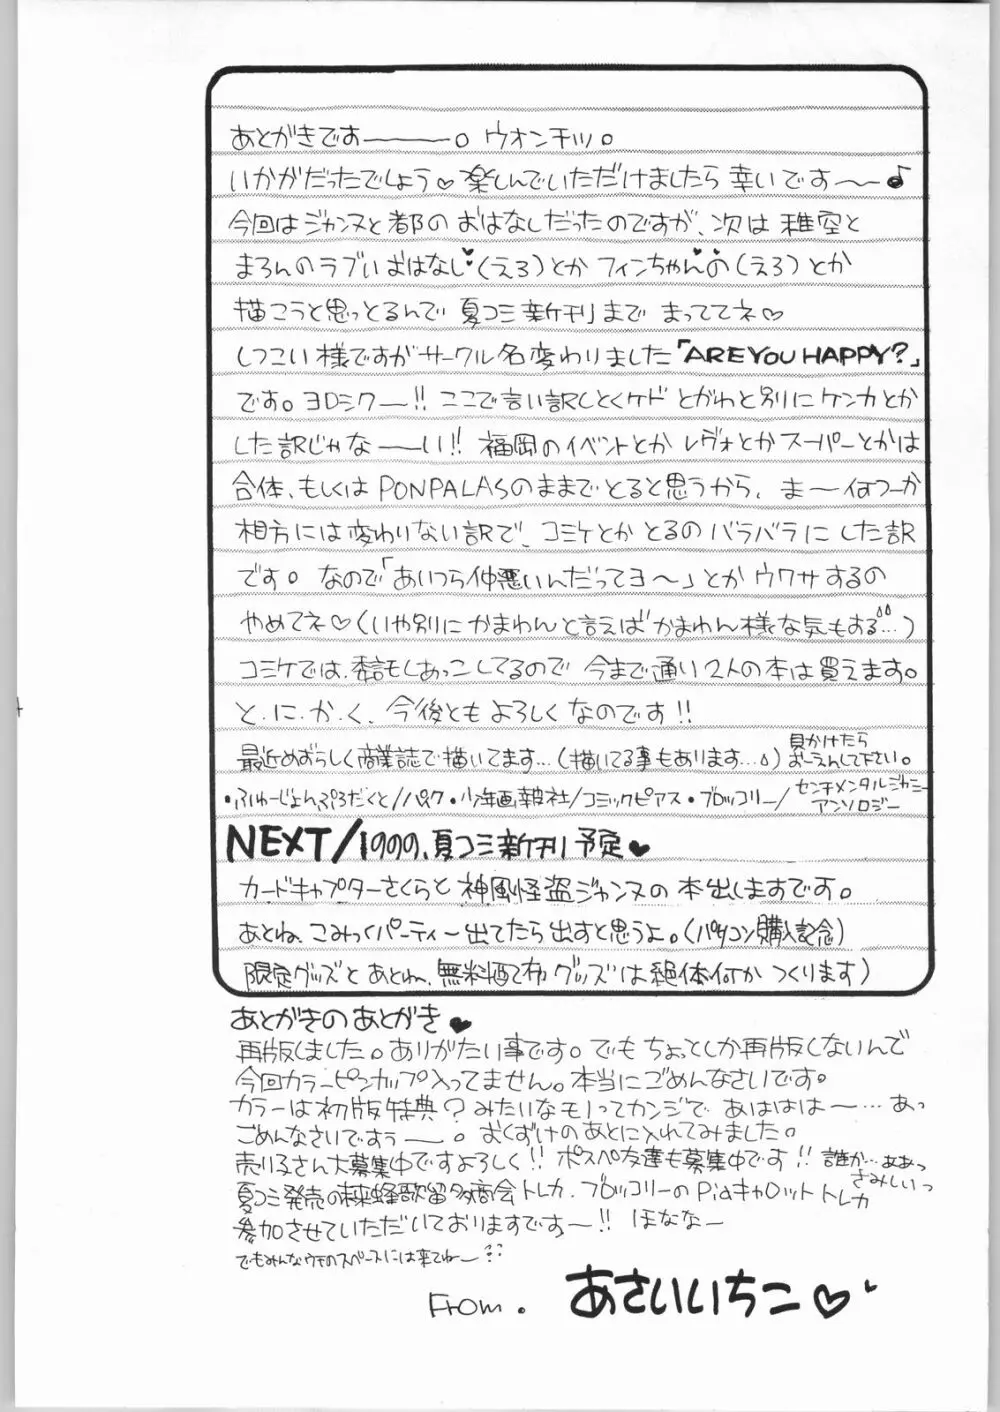 あとがきです———。ウオンチッ。
いかがだったでしょう♡楽しんでいただけましたら幸いです〜〜♪
今回はジャンヌと都のおはなしだったのですが、次は稚空と
まろんのラブいおはなし♥(えろ)とかフィンちゃんの(えろ)とか
描こうと思っとるんで夏コミ新刊までまっててネ♡
しつこい様ですがサークル名変わりました「AREYOUHAPPY?」
です。ヨロシクー!!ここで言い訳しとくケドとがわと別にケンカとか
した訳じゃな——い!!福岡のイベントとかレヴォとかスーパーとかは
合体、もしくはPONPALASのままでとると思うから、ま〜何つーか
相方には変わりない訳で、コミケとかとるのバラバラにした訳
です。なので「あいつら仲悪いんだってヨ〜」とかウワサするの
やめてネ♡(いや別にかまわんと言えばかまわん様な気もする…)
コミケでは、委託もしあっこしてるので今まで通り2人の本は買えます。
と.に.か.く、今後ともよろしくなのです!!
最近めずらしく商業誌で描いてます…(描いてる事もあります…)見かけたらおーえんして下さい。
・ふゅーじょんぷろだくと/パイク・少年画報社/コミックピアス・ブロッコリー/センチメンタルジャニーアンソロジー
NEXT/1999、夏コミ新刊予定♥
カードキャプターさくらと神風怪盗ジャンヌの本出しますです。
あとね、こみっくパーティー出てたら出すと思うよ。(パソコン購入記念)
限定グッズとあとねー、無料配布グッズは絶体何かつくります)
あとがきのあとがき♥
再版しました。ありがたい事です。でもちょっとしか再版しないんで
今回カラーピンナップ入ってません。本当にごめんなさいです。
カラーは初版特典?みたいなモノってカンジであははは—…あっ
ごめんなさいですぅー。おくずけのあとに入れてみました。
売り子さん大募集中ですよろしく!!ポスペ友達も募集中です!!誰か…ああっさみしいっ
夏コミ発売の歌留多商会トレカ、ブロッコリーのPiaキャロットトレカ
参加させていただいておりますです〜!!ほなな—
でもみんなウチのスペースには来てねー
From. あさいいちこ♡